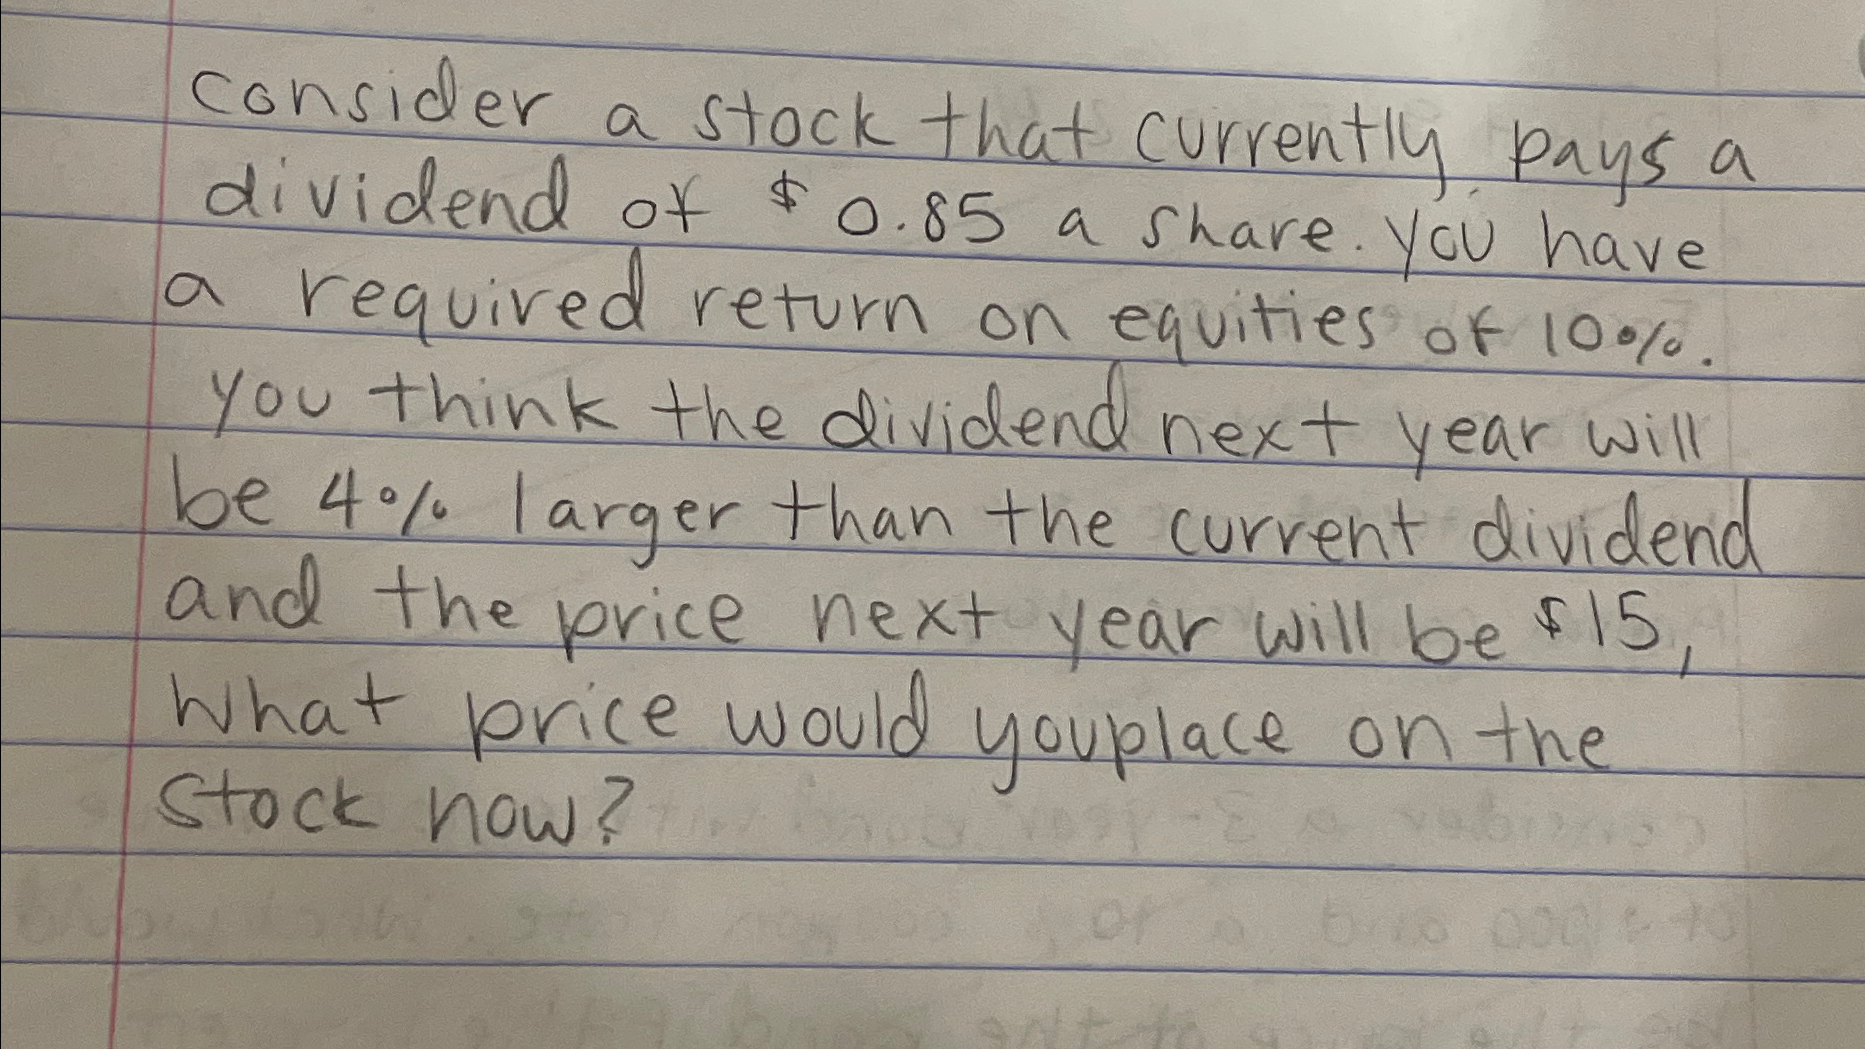 consider a stock that currently pays a
dividend of $0.85 a share. you have
a required return on equities of 10%.
you think the dividend next year will
be 4% larger than the current dividend
and the price next year will be $15,
What price would you place on the
stock now?